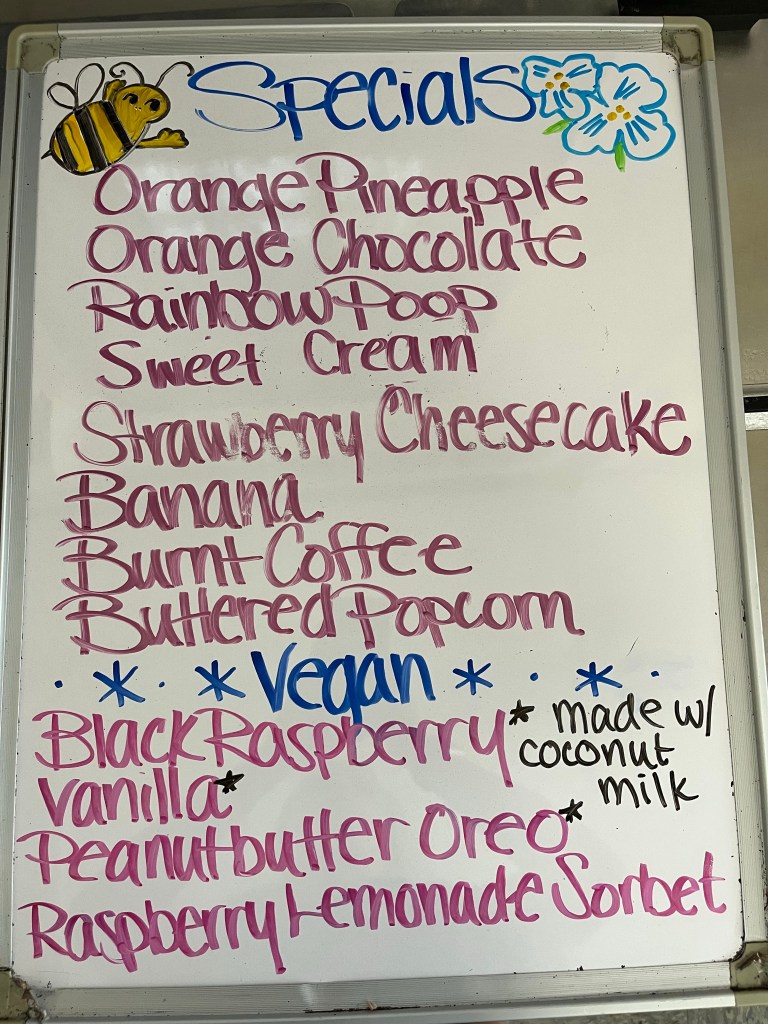 Specials
Orange Pineapple
Orange Chocolate
Rainbow Poop
Sweet Cream
Strawberry Cheesecake
Banana
Burnt Coffee
Buttered Popcorn
· * · * · Vegan * · * ·
Black Raspberry* made w/
coconut
vanilla* milk
Peanutbutter Oreo*
Raspberry Lemonade Sorbet